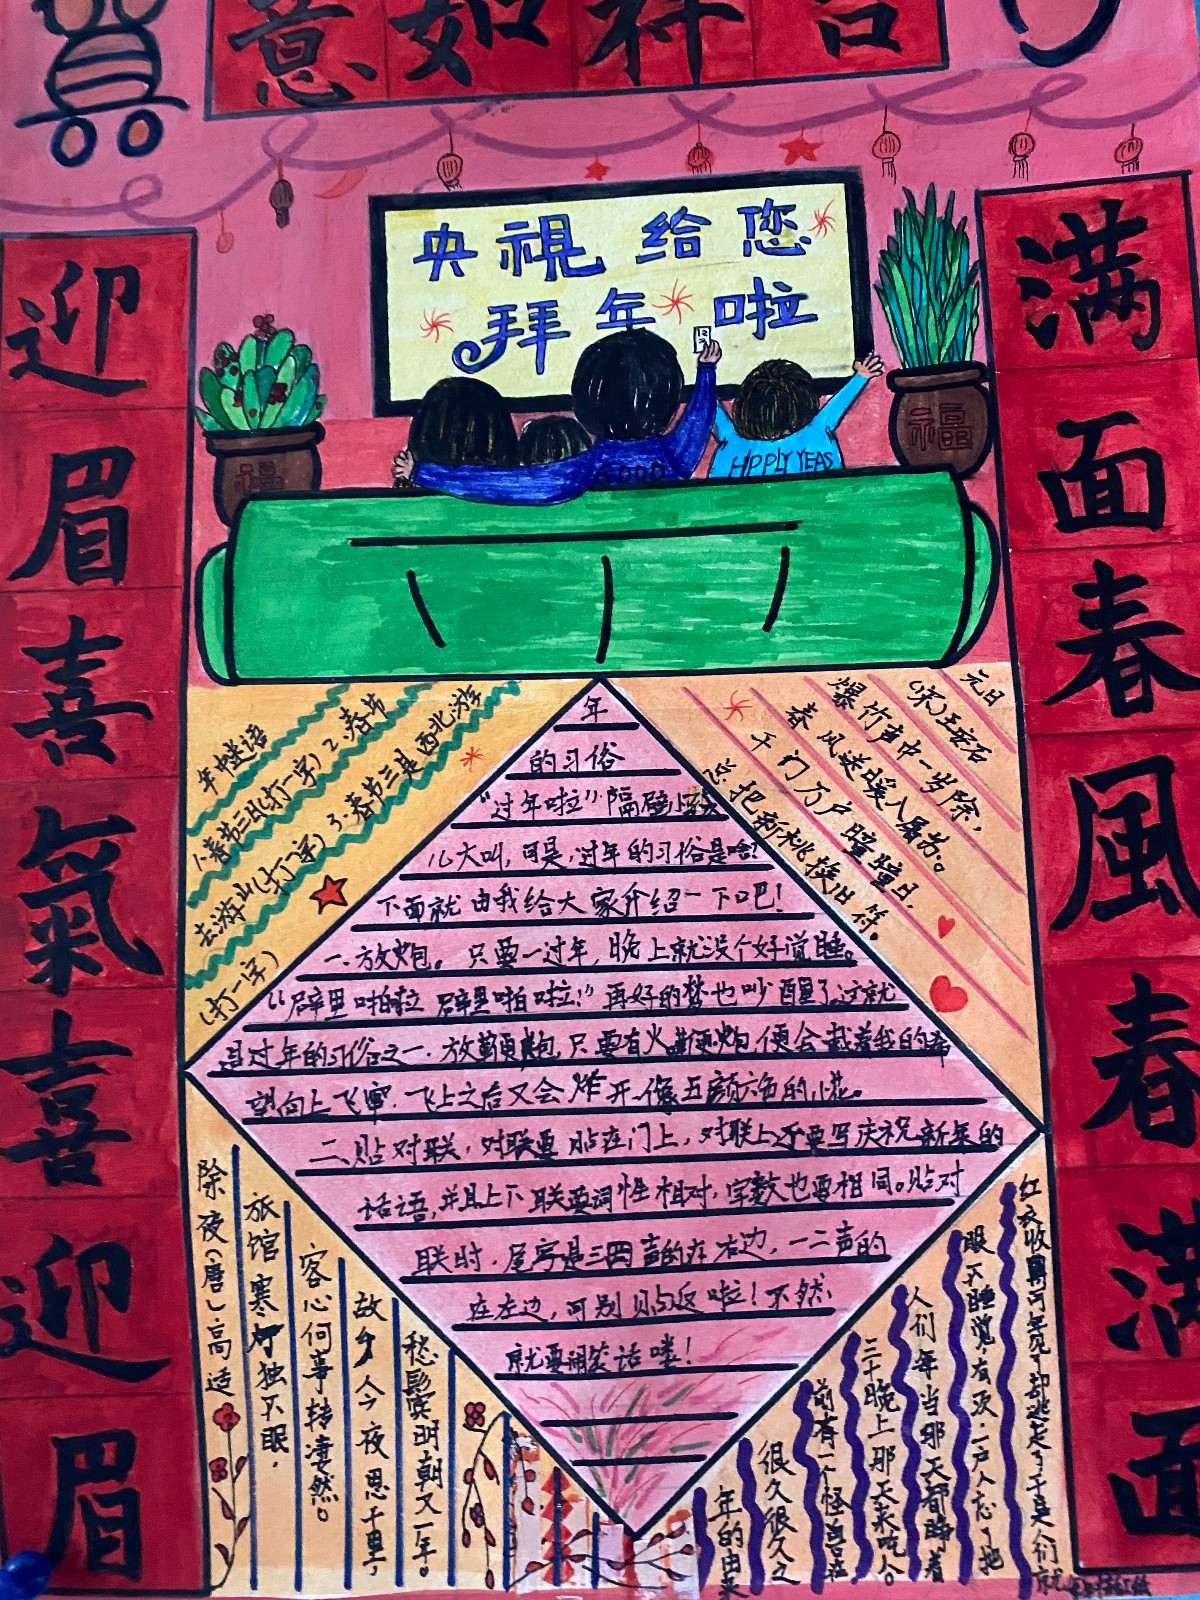 吉祥如意
满面春風春满面
迎眉喜氣喜迎眉
央視给您
拜年啦
福
福
GOOD
HPPLY YEAS
年中谜语
1.春节三日(打一字) 2.春节
去游山(打一字) 3.春节三是西北游
(打一字)
元日
(宋)王安石
爆竹声中一岁除，
春风送暖入屠苏。
千门万户瞳瞳日，
总把新桃换旧符。
年
的习俗
“过年啦”隔壁小
儿大叫，可是，过年的习俗是啥？
下面就由我给大家介绍一下吧！
一、放炮。只要一过年，晚上就没个好觉睡。
“辟里啪啦 辟里啪啦！”再好的梦也吵醒了。这就
是过年的习俗之一。放鞭炮，只要有火 鞭炮便会载着我的希
望向上飞窜．飞上之后又会炸开像五颜六色的小花。
二、贴对联，对联要贴在门上，对联上还要写庆祝新年的
话语，并且上下联要词性相对，字数也要相同。贴对
联时，尾字是三四声的在右边，一二声的
在左边，可别贴反啦！不然
就要闹笑话喽！
除夜(唐)高适
旅馆寒灯独不眠，
客心何事转凄然。
故乡今夜思千里，
愁鬓霜明朝又一年。
年的由来
很久很久之
前有一个怪兽在
三十晚上那天来吃人。
人们每当那天都睁着
眼不睡觉，有次，一户人忘了把
红衣收 可年见了却逃走了于是人们
就